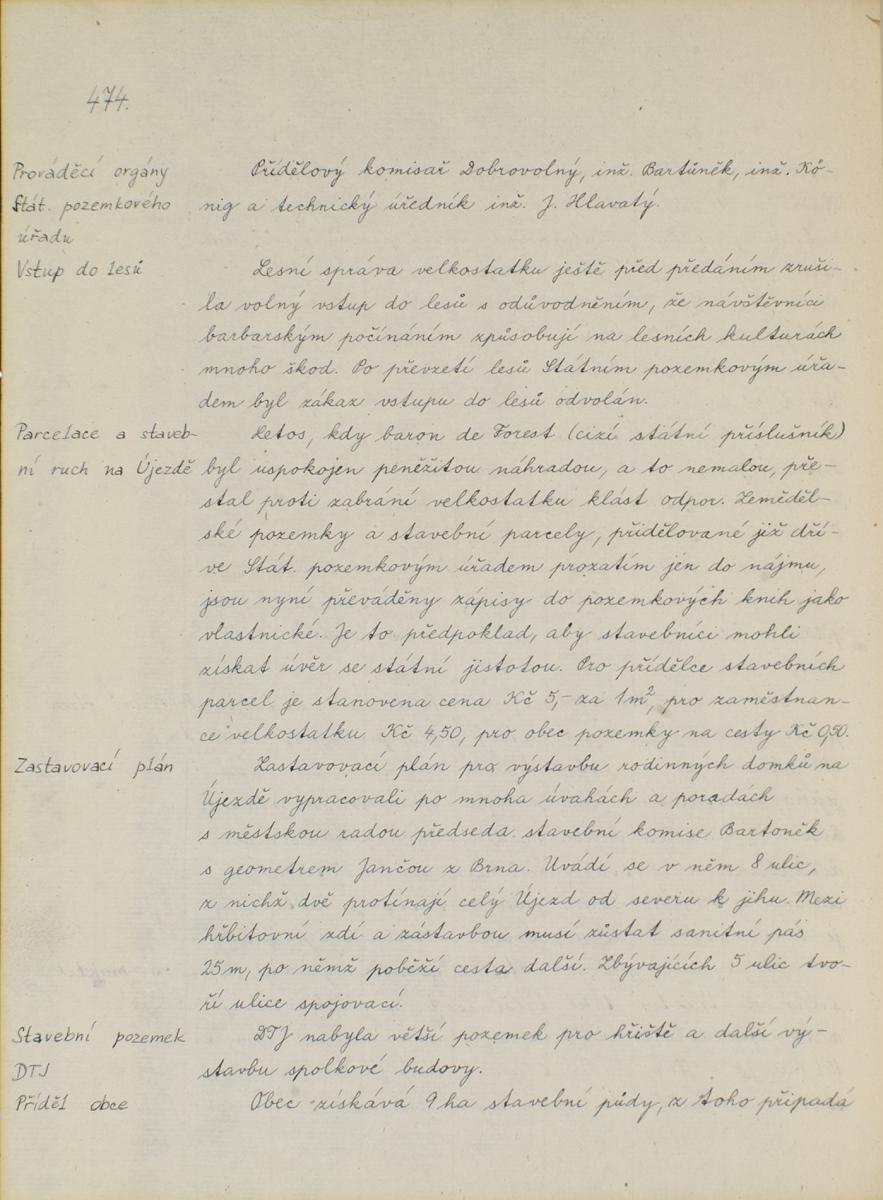 474.
Prováděcí orgány
Stát. pozemkového
úřadu
Přídělový komisař Dobrovolný, inž. Bartůněk, inž. Kö-
nig a technický úředník inž. J. Hlavatý.
Vstup do lesů
Lesní správa velkostatku ještě před předáním zruši-
la volný vstup do lesů s odůvodněním, že návštěvníci
barbarským počínáním způsobují na lesních kulturách
mnoho škod. Po převzetí lesů Státním pozemkovým úřa-
dem byl zákaz vstupu do lesů odvolán.
Parcelace a staveb-
ní ruch na Újezdě
Letos, kdy baron de Forest (cizí státní příslušník)
byl uspokojen peněžitou náhradou, a to nemalou, pře-
stal proti zabrání velkostatku klást odpor. Zeměděl-
ské pozemky a stavební parcely, přidělované již dří-
ve Stát. pozemkovým úřadem prozatím jen do nájmu,
jsou nyní převáděny zápisy do pozemkových knih jako
vlastnické. Je to předpoklad, aby stavebníci mohli
získat úvěr se státní jistotou. Pro přídělce stavebních
parcel je stanovena cena Kč 5,- za 1m², pro zaměstnan-
ce velkostatku Kč 4,50, pro obec pozemky na cesty Kč 0,50.
Zastavovací plán
Zastavovací plán pro výstavbu rodinných domků na
Újezdě vypracovali po mnoha úvahách a poradách
s městskou radou předseda stavební komise Bartoněk
s geometrem Jančou z Brna. Uvádí se v něm 8 ulic,
z nichž dvě protínají celý Újezd od severu k jihu. Mezi
hřbitovní zdí a zástavbou musí zůstat sanitní pás
25m, po němž poběží cesta další. Zbývajících 5 ulic tvo-
ří ulice spojovací.
Stavební pozemek
DTJ
DTJ nabyla větší pozemek pro hřiště a další vý-
stavbu spolkové budovy.
Příděl obce
Obec získává 9 ha stavební půdy, z toho připadá